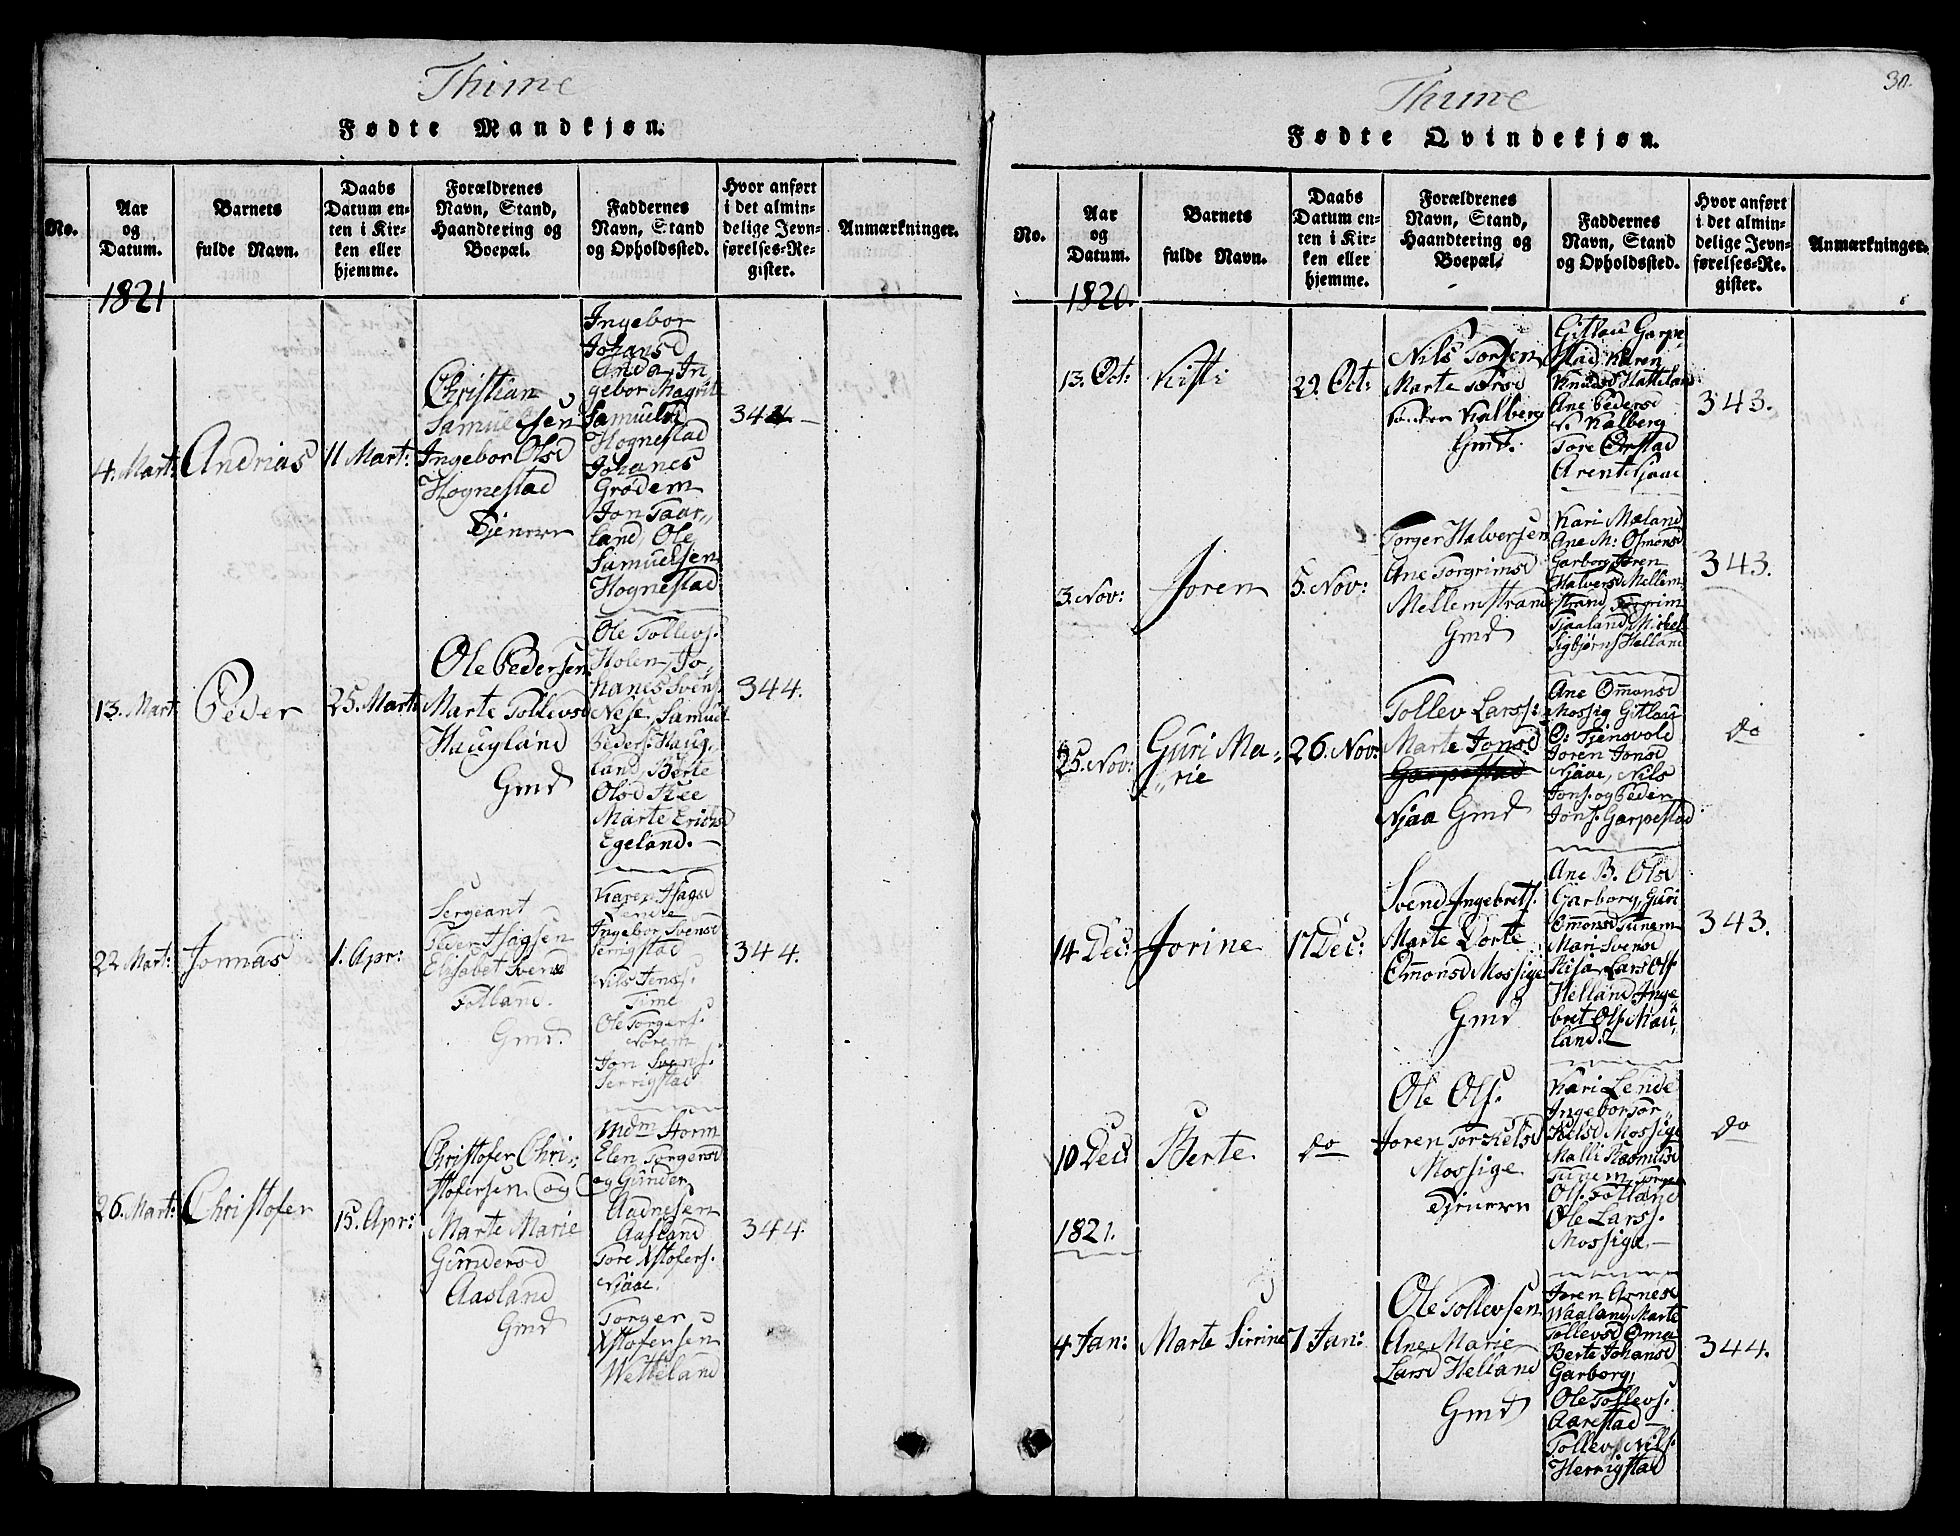 Thime
Fødte Mandkjøn.
No.
Aar
og
Datum.
Barnets
fulde Navn.
Daabs
Datum en-
ten i Kir-
ken eller
hjemme.
Forældrenes
Navn, Stand,
Haandtering og
Boepæl.
Faddernes
Navn, Stand
og Opholdssted.
Hvor anført
i det almin-
delige Jevn-
førelses-Re-
gister.
Anmærkninger.
1821
4. Mart:
Andrias
11 Mart:
Christian
Samuelsen
Ingebor Olsd
Hognestad
Tjenere
Ingebor
Johansd
Anda, In
gebor Magrit
Samuelsd
Hognestad
Johanes
Grødem
Jon Taar„
land, Ole
Samuelsen
Hognestad
344
13. Mart
Peder
25. Mart:
Ole Pedersen
Marte Tollevsd
Haugland
Gmd
Ole Tollevs.
Holen, Jo„
hanes Svens.
Nese, Samuel
Peders: Haug„
land, Berte
Olsd Kee
Marte Ericksd
Egeland.
344.
22 Mart:
Jonnas
1. Apr:
Sergeant
Peder Isagsen
Elisabet Svend
Folland.
Gmd.
Karen Isagsd
Lende
Ingebor Svensd
Serrigstad
Nils Jens.
Time
Ole Torgers.
Norem
Jon Svens.
Serrigstad
344.
26. Mart:
Christofer
15. Apr:
Christofer Chri„
stofersen og
Marte Marie
Gundersd
Aasland
Gmd
Mdm Storm
Elen Torgersd
og Gunder
Aadnesen
Aasland
Tore Xstofers.
Njaae,
Torger
Xstofersen
Wetteland
344.
30.
Thime
Fødte Qvindekjøn.
No.
Aar
og
Datum.
Barnets
fulde Navn.
Daabs
Datum en-
ten i Kir-
ken eller
hjemme.
Forældrenes
Navn, Stand,
Haandtering og
Boepæl.
Faddernes
Navn, Stand
og Opholdssted.
Hvor anført
i det almin-
delige Jevn-
førelses-Re-
gister.
Anmærkninger.
1820.
13. Oct:
Kisti
29. Oct:
Nils Torsen
Marte Torsd
Kalberg
Gmd.
Gitlau Garpe
stad Karen
Knudsd Hatteland
Ane Pedersd
N. Kalberg
Tore Orstad
Arent Njaae
343.
3. Nov:
Joren
5. Nov:
Torger Halversen
Ane Torgrimsd
Mellemstrand
Gmd
Kari Mæland
Ane M: Osmonsd
Garborg, Joren
Halversd Mellem
strand, Torgrim
Tjaaland, Michel
Sigbjørns Helland
343.
25. Nov:
Guri Ma„
„rie
26. Nov:
Tollev Larss:
Marte Jonsd
Garpestad
Njaa Gmd
Ane Omonsd
Mossig Gitlau
O: Tjensvold
Joren Jonsd
Njaae, Nils
Jons. og Peder
Jons. Garpestad
do
14 Dec:
Jorine
17 Dec:
Svend Ingebrets.
Marte Dorte
Omonsd Mossige
Gmd
Ane B. Olsd
Garborg, Guri
Omonsd Tunem
Mari Svensd
Risa Lars Ols.
Helland, Inge
bret Ols. Mau„
land.
343.
10 Dec:
Berte
do
Ole Ols.
Joren Torkelsd
Mossige
Tjenere
Kari Lende
Ingebor Tor„
kelsd Mossige
Malli Rasmusd
Tunem, Torger
Ols. Folland
Ole Larss.
Mossige.
do
1821.
4 Jan:
Marte Sirrine
7 Jan:
Ole Tollevsen
Ane Marie
Larsd Helland
Gmd
Joren Arnesd
Waaland, Marte
Tollevsd Oma
Berte Johansd
Garborg,
Ole Tollevs.
Aarestad
Tollev Nils.
Herrigstad
344.